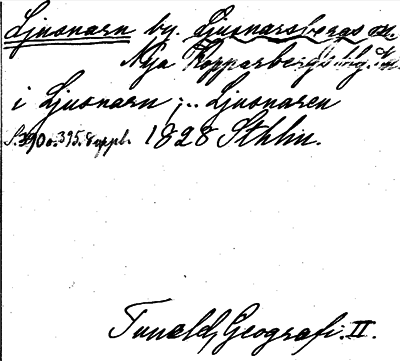 Ljusnarn by. Ljusnarsbergs sn.
Nya Kopparbergs bg. Öm.
i Ljusnarn ; .. Ljusnaren
S. 390 o. 395. 8 uppl. 1828 Sthlm.
Tuneld, Geografi. II.